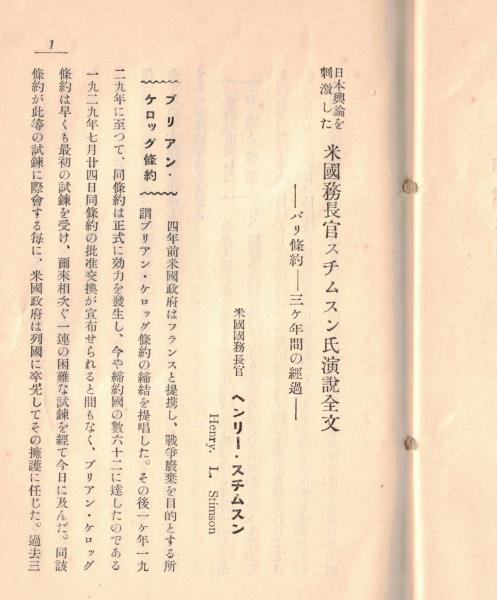 日本輿論を
刺激した
米國務長官スチムスン氏演說全文
――パリ條約――三ケ年間の經過――
米國國務長官 ヘンリー・スチムスン
Henry. L. Stimson
ブリアン・
ケロッグ條約
四年前米國政府はフランスと提携し、戰爭廢棄を目的とする所
謂ブリアン・ケロッグ條約の締結を提唱した。その後一ケ年一九
二九年に至つて、同條約は正式に効力を發生し、今や締約國の數六十二に達したのである
一九二九年七月廿四日同條約の批准交換が宣布せられると間もなく、ブリアン・ケロッグ
條約は早くも最初の試鍊を受け、爾來相次ぐ一連の困難な試鍊を經て今日に及んだ。同該
條約が此等の試鍊に際會する每に、米國政府は列國に率先してその擁護に任じた。過去三
1